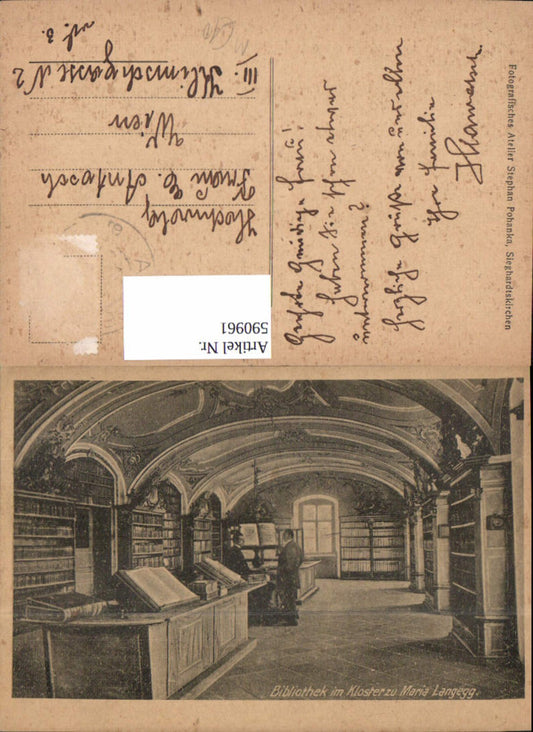 Fotografisches Atelier Stephan Pohanka, Sieghardtskirchen
Artikel Nr.
590961
Hochwolg
Frau E. Antosch
Wien
III. Klimschgasse N 2
Geehrte Gnädige Frau!
haben Sie schon
herzliche Grüße
Ihre Familie
Bibliothek im Kloster zu Maria Langegg.